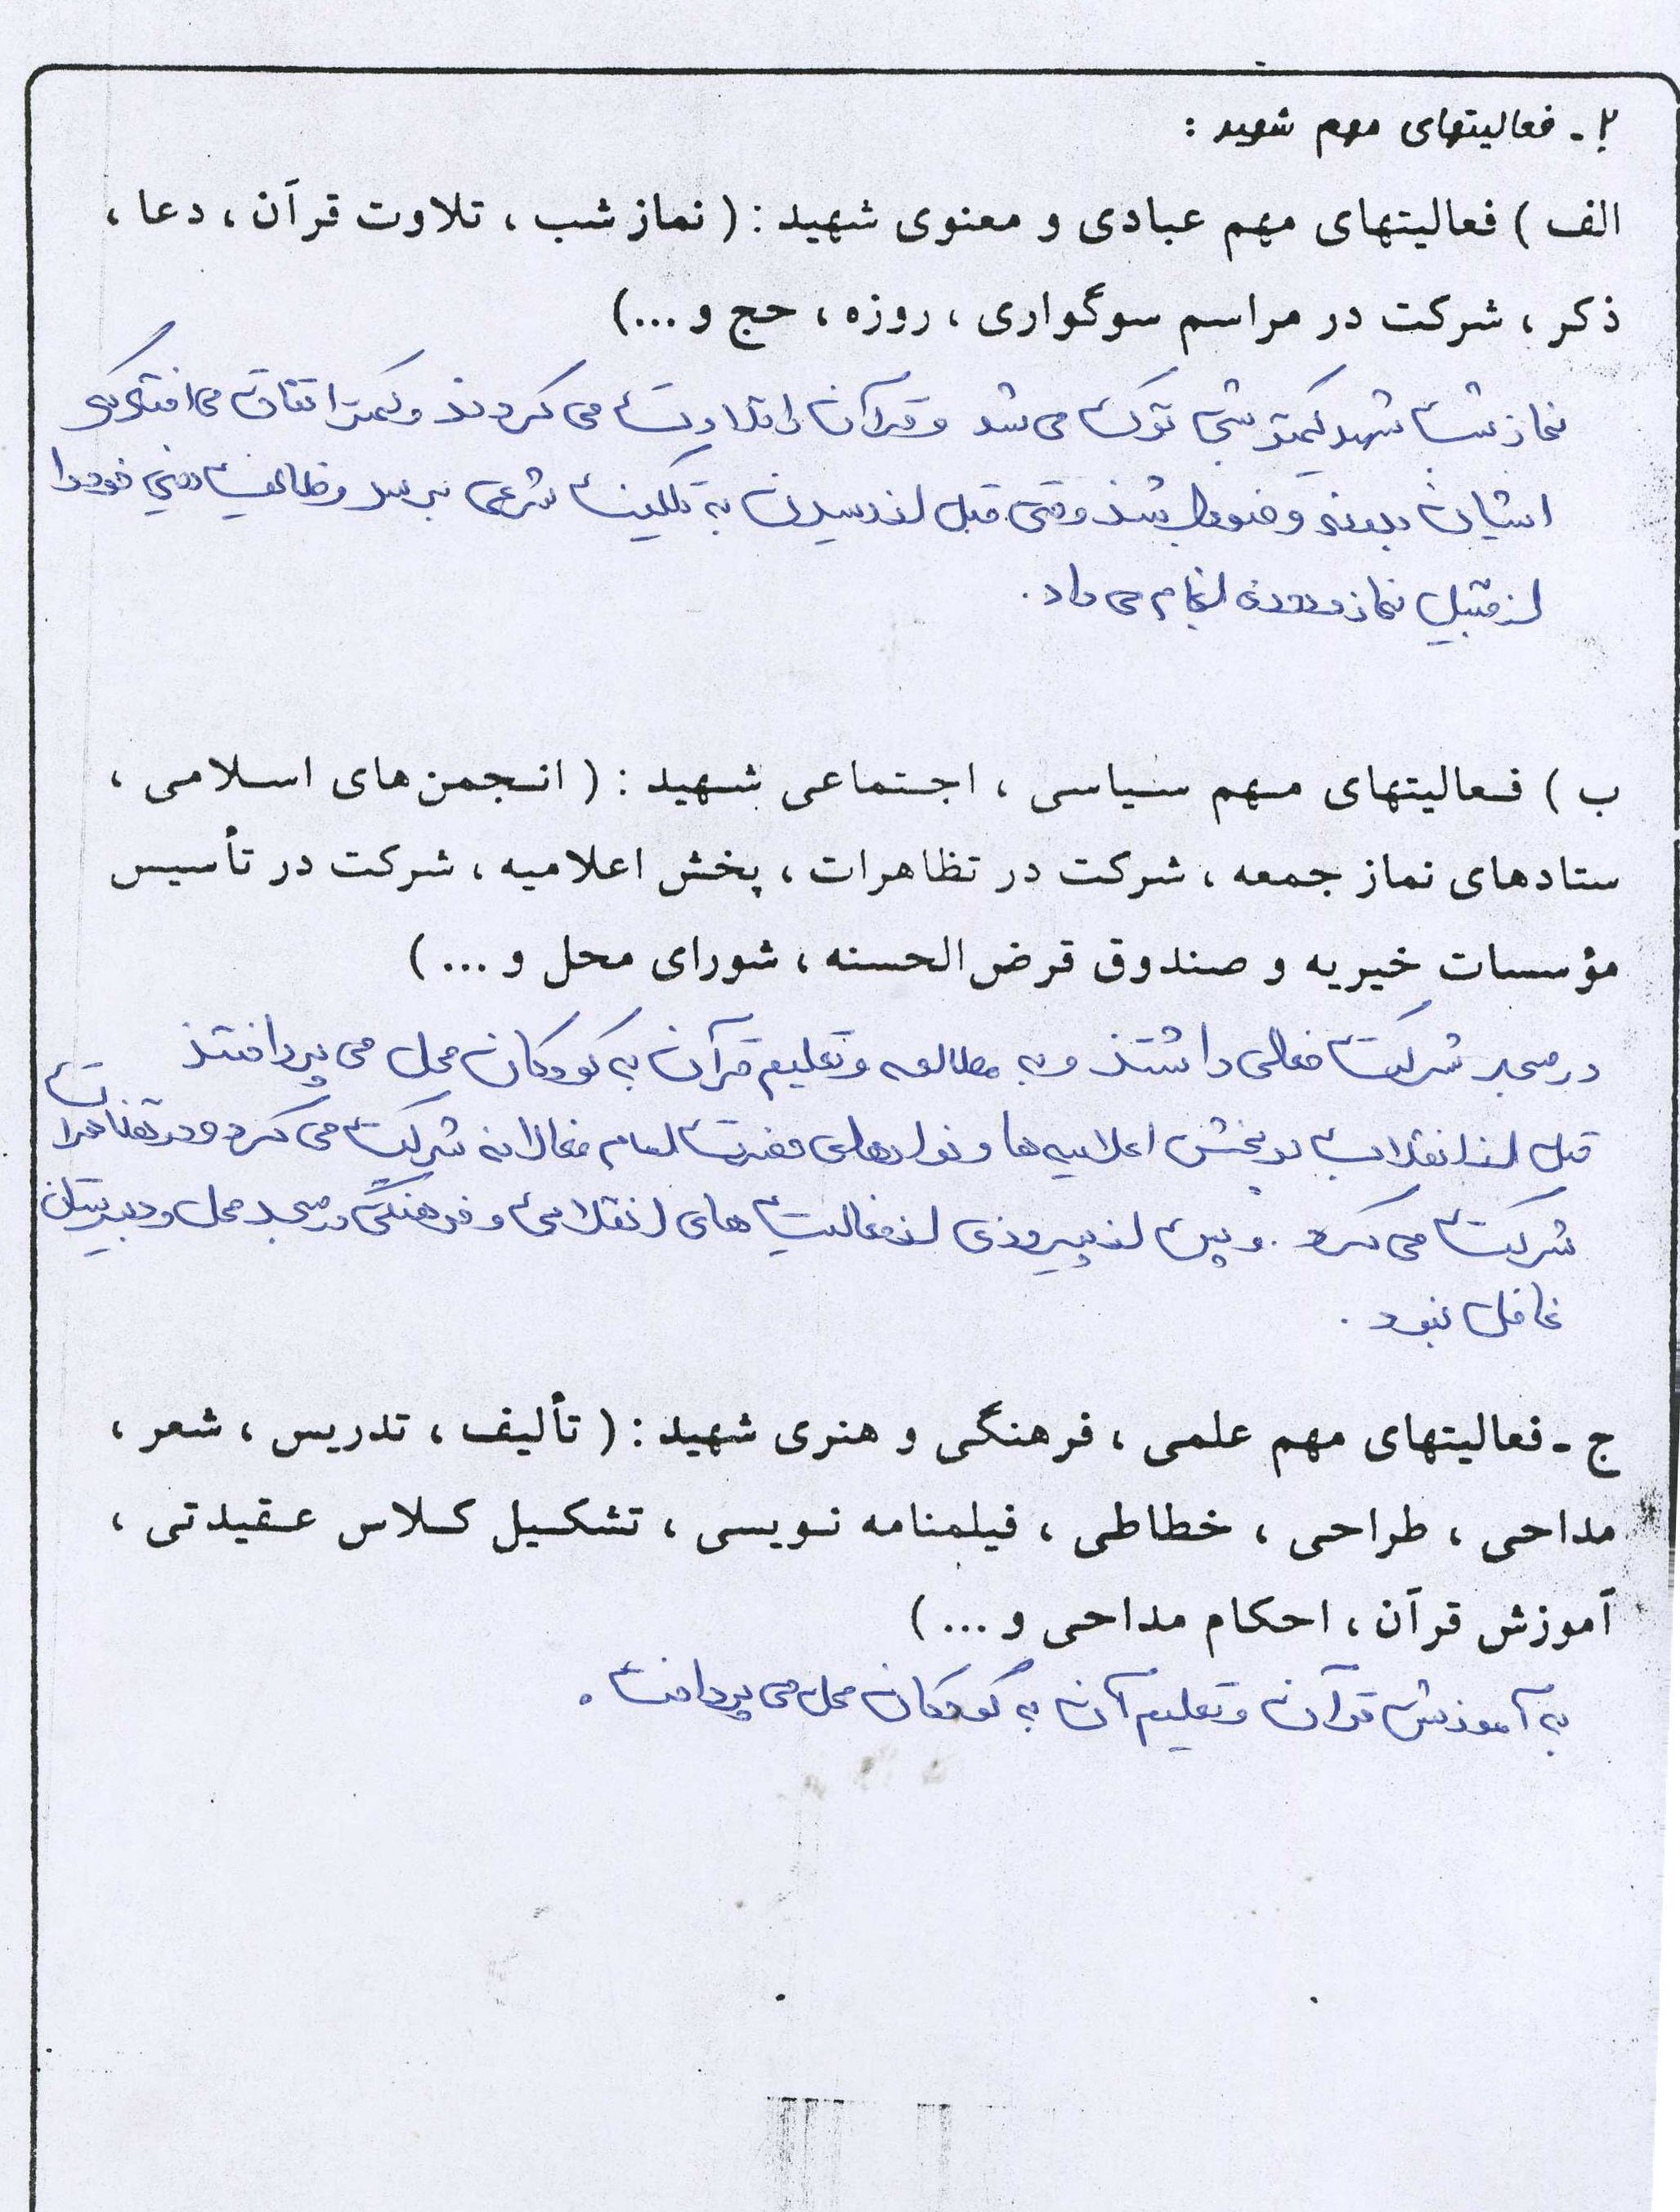 ۲ ـ فعالیتهای مهم شهید :
الف ) فعالیتهای مهم عبادی و معنوی شهید : ( نماز شب ، تلاوت قرآن ، دعا ،
ذکر ، شرکت در مراسم سوگواری ، روزه ، حج و ...)
نماز شب شهید کمتر شبی ترک می شد و قرآن را تلاوت می کردند و کمتر اتفاق می افتد که
ایشان بدون وضو باشند و حتی قبل از رسیدن به تکلیف شرعی برسد وظائف دینی خود را
از قبیل نماز و روزه انجام می داد .
ب ) فعالیتهای مهم سیاسی ، اجتماعی شهید : ( انجمن های اسلامی ،
ستادهای نماز جمعه ، شرکت در تظاهرات ، پخش اعلامیه ، شرکت در تأسیس
مؤسسات خیریه و صندوق قرض الحسنه ، شورای محل و ... )
در مسجد شرکت فعالی داشتند و به مطالعه و تعلیم قرآن به کودکان محل می پرداختند
قبل از انقلاب در پخش اعلامیه ها و نوارهای حضرت امام فعالانه شرکت می کرد و در تظاهرات
شرکت می کرد . و پس از پیروزی از فعالیت های انقلابی و فرهنگی در مسجد محل و دبیرستان
غافل نبود .
ج ـ فعالیتهای مهم علمی ، فرهنگی و هنری شهید : ( تألیف ، تدریس ، شعر ،
مداحی ، طراحی ، خطاطی ، فیلمنامه نویسی ، تشکیل کلاس عقیدتی ،
آموزش قرآن ، احکام مداحی و ... )
به آموزش قرآن و تعلیم آن به کودکان محل می پرداخت .